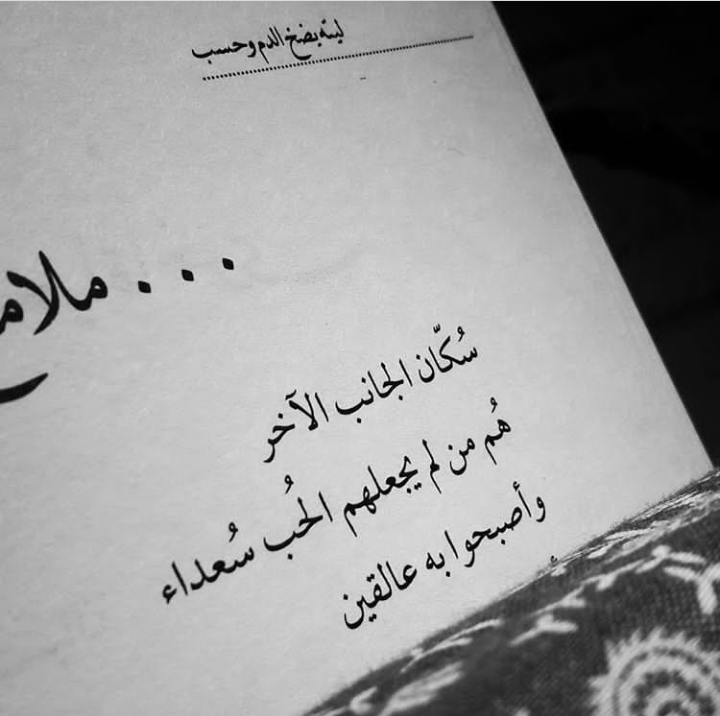 ليته يضخ الدم وحسب
ملامح . . .
سُكّان الجانب الآخر
هُم من لم يجعلهم الحُب سُعداء
وأصبحوا به عالقين